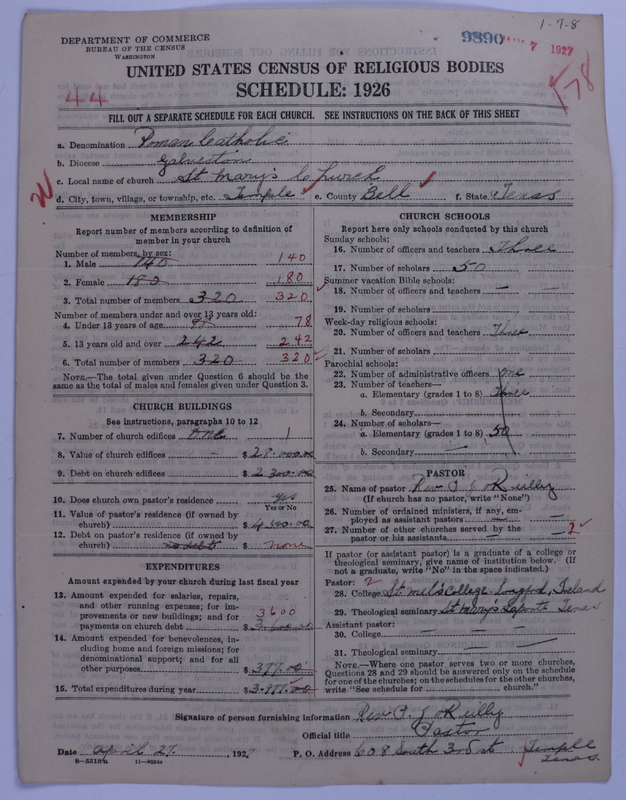 1-7-8
DEPARTMENT OF COMMERCE
BUREAU OF THE CENSUS
WASHINGTON
9890 7 1927
UNITED STATES CENSUS OF RELIGIOUS BODIES
SCHEDULE: 1926
44
178
FILL OUT A SEPARATE SCHEDULE FOR EACH CHURCH. SEE INSTRUCTIONS ON THE BACK OF THIS SHEET
a. Denomination Roman Catholic
b. Diocese Galveston
c. Local name of church St Mary's Church
d. City, town, village, or township, etc. Temple e. County Bell f. State Texas
MEMBERSHIP
Report number of members according to definition of
member in your church
Number of members, by sex:
1. Male 140 140
2. Female 180 180
3. Total number of members 320 320
Number of members under and over 13 years old:
4. Under 13 years of age 78
5. 13 years old and over 242 242
6. Total number of members 320 320
NOTE.—The total given under Question 6 should be the
same as the total of males and females given under Question 3.
CHURCH BUILDINGS
See instructions, paragraphs 10 to 12
7. Number of church edifices one 1
8. Value of church edifices $28.000.00
9. Debt on church edifices $2300.00
10. Does church own pastor's residence yes
Yes or No
11. Value of pastor's residence (if owned by
church) $
12. Debt on pastor's residence (if owned by
church) no debt $ none
EXPENDITURES
Amount expended by your church during last fiscal year
13. Amount expended for salaries, repairs,
and other running expenses; for im-
provements or new buildings; and for
payments on church debt 3600 $
14. Amount expended for benevolences, in-
cluding home and foreign missions; for
denominational support; and for all
other purposes $377.00
15. Total expenditures during year $3.977.00
CHURCH SCHOOLS
Report here only schools conducted by this church
Sunday schools:
16. Number of officers and teachers Three
17. Number of scholars 50
Summer vacation Bible schools:
18. Number of officers and teachers —
19. Number of scholars
Week-day religious schools:
20. Number of officers and teachers Three
21. Number of scholars
Parochial schools:
22. Number of administrative officers one
23. Number of teachers—
a. Elementary (grades 1 to 8) Three
b. Secondary
24. Number of scholars—
a. Elementary (grades 1 to 8) 50
b. Secondary —
PASTOR
25. Name of pastor Rev P J O'Reilly
(If church has no pastor, write "None")
26. Number of ordained ministers, if any, em-
ployed as assistant pastors —
27. Number of other churches served by the
pastor or his assistants —
If pastor (or assistant pastor) is a graduate of a college or
theological seminary, give name of institution below. (If
not a graduate, write "No" in the space indicated.)
Pastor: 2
28. College St mel's College Longford, Ireland
29. Theological seminary St Mary's Laporte Texas
Assistant pastor:
30. College — —
31. Theological seminary —
NOTE.—Where one pastor serves two or more churches,
Questions 28 and 29 should be answered only on the schedule
for one of the churches; on the schedules for the other churches,
write "See schedule for ........ church."
Signature of person furnishing information Rev P. J O'Reilly
Official title Pastor
Date april 27, 1927 P. O. Address 608 South 3rd st Temple
Texas.
8—5518a 11—9054